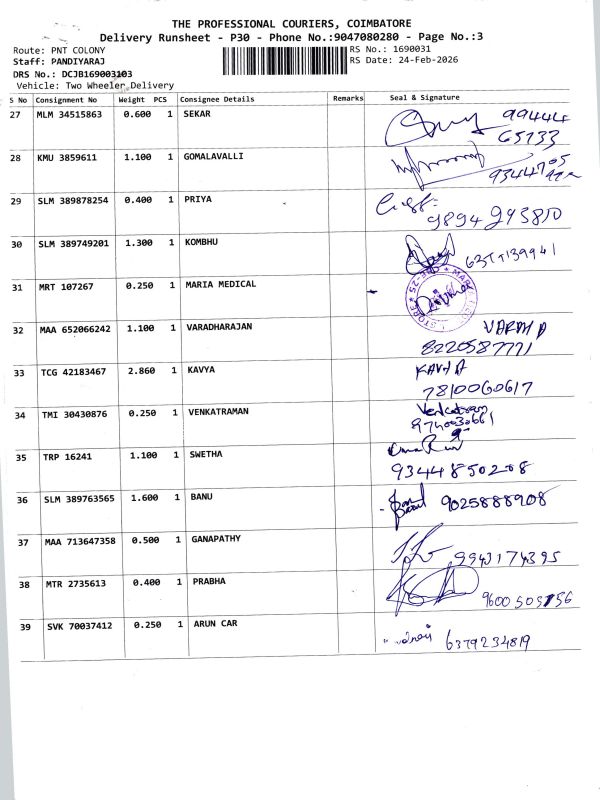 THE PROFESSIONAL COURIERS, COIMBATORE
Delivery Runsheet - P30 - Phone No.:9047080280 - Page No.:3
Route: PNT COLONY
RS No.: 1690031
Staff: PANDIYARAJ
RS Date: 24-Feb-2026
DRS No.: DCJB169003103
Vehicle: Two Wheeler Delivery
S No Consignment No Weight PCS Consignee Details Remarks Seal & Signature
27 MLM 34515863 0.600 1 SEKAR 99444
65133
28 KMU 3859611 1.100 1 GOMALAVALLI
29 SLM 389878254 0.400 1 PRIYA
9894 293810
30 SLM 389749201 1.300 1 KOMBHU
31 MRT 107267 0.250 1 MARIA MEDICAL
32 MAA 652066242 1.100 1 VARADHARAJAN
8220587771
33 TCG 42183467 2.860 1 KAVYA KAVYA
7810060617
34 TMI 30430876 0.250 1 VENKATRAMAN Venkatram
35 TRP 16241 1.100 1 SWETHA
9344850208
36 SLM 389763565 1.600 1 BANU 9025888908
37 MAA 713647378 0.500 1 GANAPATHY 9943174395
38 MTR 2735613 0.400 1 PRABHA
39 SVK 70037412 0.250 1 ARUN CAR 6379234819